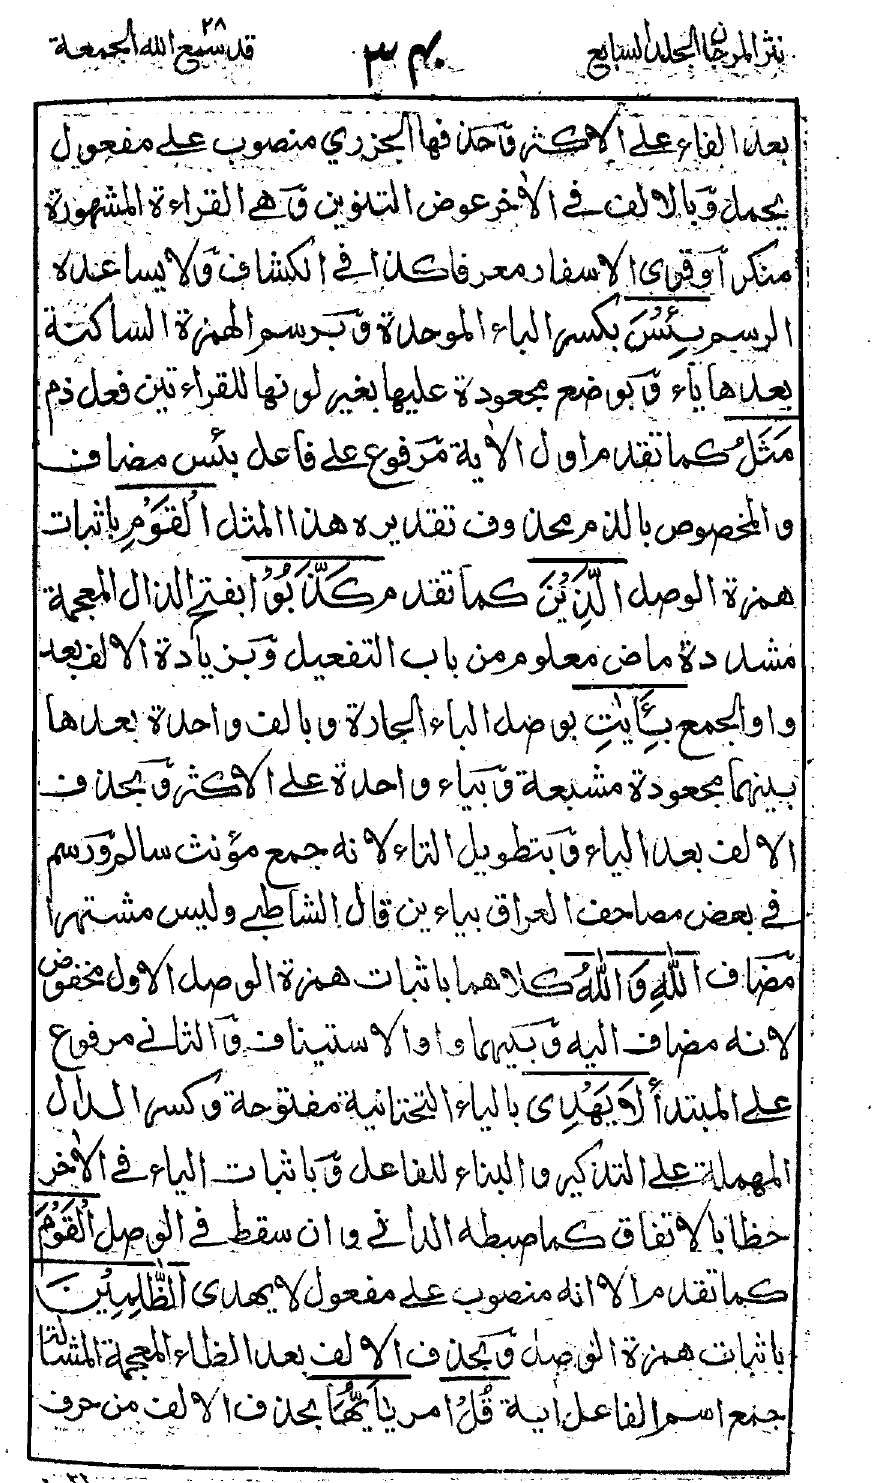 نثر المرجان المجلد السابع
٣٤٠
قد سمع الله ٢٨ الجمعة
بعد الفاء على الاكثر وحذفها الجزري منصوب على مفعول
يحمل وبالالف في الاخر عوض التنوين وهي القراءة المشهورة
منكرا وقرى الاسفار معرفا كذا في الكشاف ولا يساعده
الرسم بِئْسَ بكسر الباء الموحدة وبرسم الهمزة الساكنة
بعدها ياء وبوضع مجعودة عليها بغير لونها للقراءتين فعل ذم
مَثَلُ كما تقدم اول الاية مرفوع على فاعل بئس مضاف
والمخصوص بالذم محذوف تقديره هذا المثل الْقَوْمِ باثبات
همزة الوصل الَّذِيْنَ كما تقدم كَذَّبُوْا بفتح الذال المعجمة
مشددة ماض معلوم من باب التفعيل وبزيادة الالف بعد
واو الجمع بِـَٔايٰتِ بوصل الباء الجارة وبالف واحدة بعدها
بينهما مجعودة مشبعة وبياء واحدة على الاكثر وبحذف
الالف بعد الياء وبتطويل التاء لانه جمع مؤنث سالم ورسم
في بعض مصاحف العراق بياءين قال الشاطبي وليس مشتهرا
مضاف اللّٰهِ وَاللّٰهُ كلاهما باثبات همزة الوصل الاول مخفوض
لانه مضاف اليه وبينهما واو الاستيناف والثاني مرفوع
على المبتدأ لَا يَهْدِى بالياء التحتانية مفتوحة وكسر الدال
المهملة على التذكير والبناء للفاعل وباثبات الياء في الاخر
خطا بالاتفاق كما ضبطه الداني وان سقط في الوصل الْقَوْمَ
كما تقدم الا انه منصوب على مفعول لا يهدى الظّٰلِمِيْنَ
باثبات همزة الوصل وبحذف الالف بعد الظاء المعجمة المشالة
جمع اسم الفاعل اية قُلْ امر يٰاَيُّهَا بحذف الالف من حرف